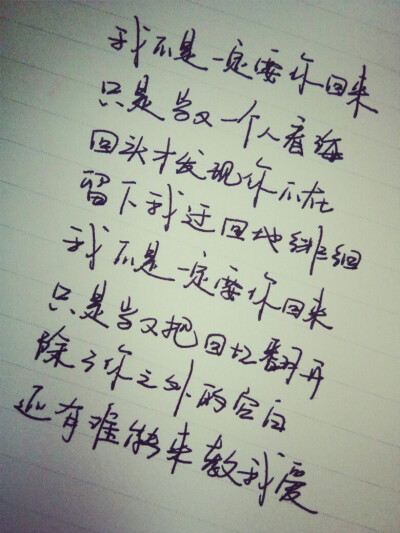 我不是一定要你回来
只是当又一个人看海
回头才发现你不在
留下我迂回地徘徊
我不是一定要你回来
只是当又把回忆翻开
除了你之外的空白
还有谁能来教我爱